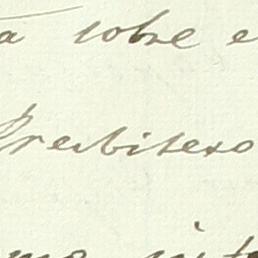 a sobre e
Presbitero